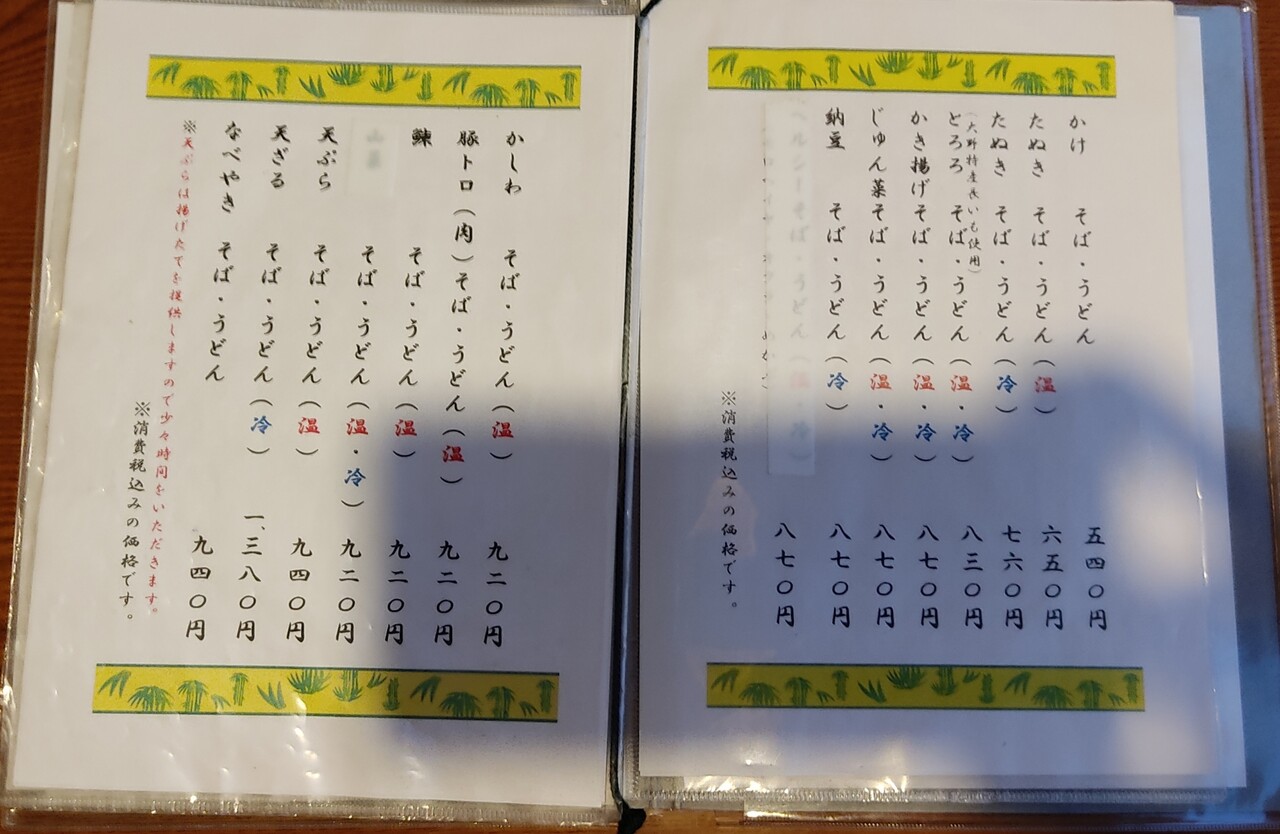 かけ そば・うどん 五四〇円
たぬき そば・うどん(温) 六五〇円
たぬき そば・うどん(冷) 七六〇円
(大野特産長いも使用)
とろろ そば・うどん(温・冷) 八三〇円
かき揚げそば・うどん(温・冷) 八七〇円
じゅん菜そば・うどん(温・冷) 八七〇円
納豆 そば・うどん(冷) 八七〇円
ヘルシーそば・うどん(温・冷) 八七〇円
※消費税込みの価格です。
かしわ そば・うどん(温) 九二〇円
豚トロ(肉)そば・うどん(温) 九二〇円
鰊 そば・うどん(温) 九二〇円
山菜 そば・うどん(温・冷) 九二〇円
天ぷら そば・うどん(温) 九四〇円
天ざる そば・うどん(冷) 一、三八〇円
なべやき そば・うどん 九四〇円
※天ぷらは揚げたてを提供しますので少々時間をいただきます。
※消費税込みの価格です。